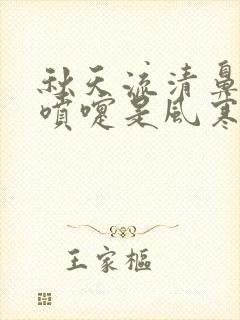 秋天流清鼻
噴嚏是風寒
王家樞